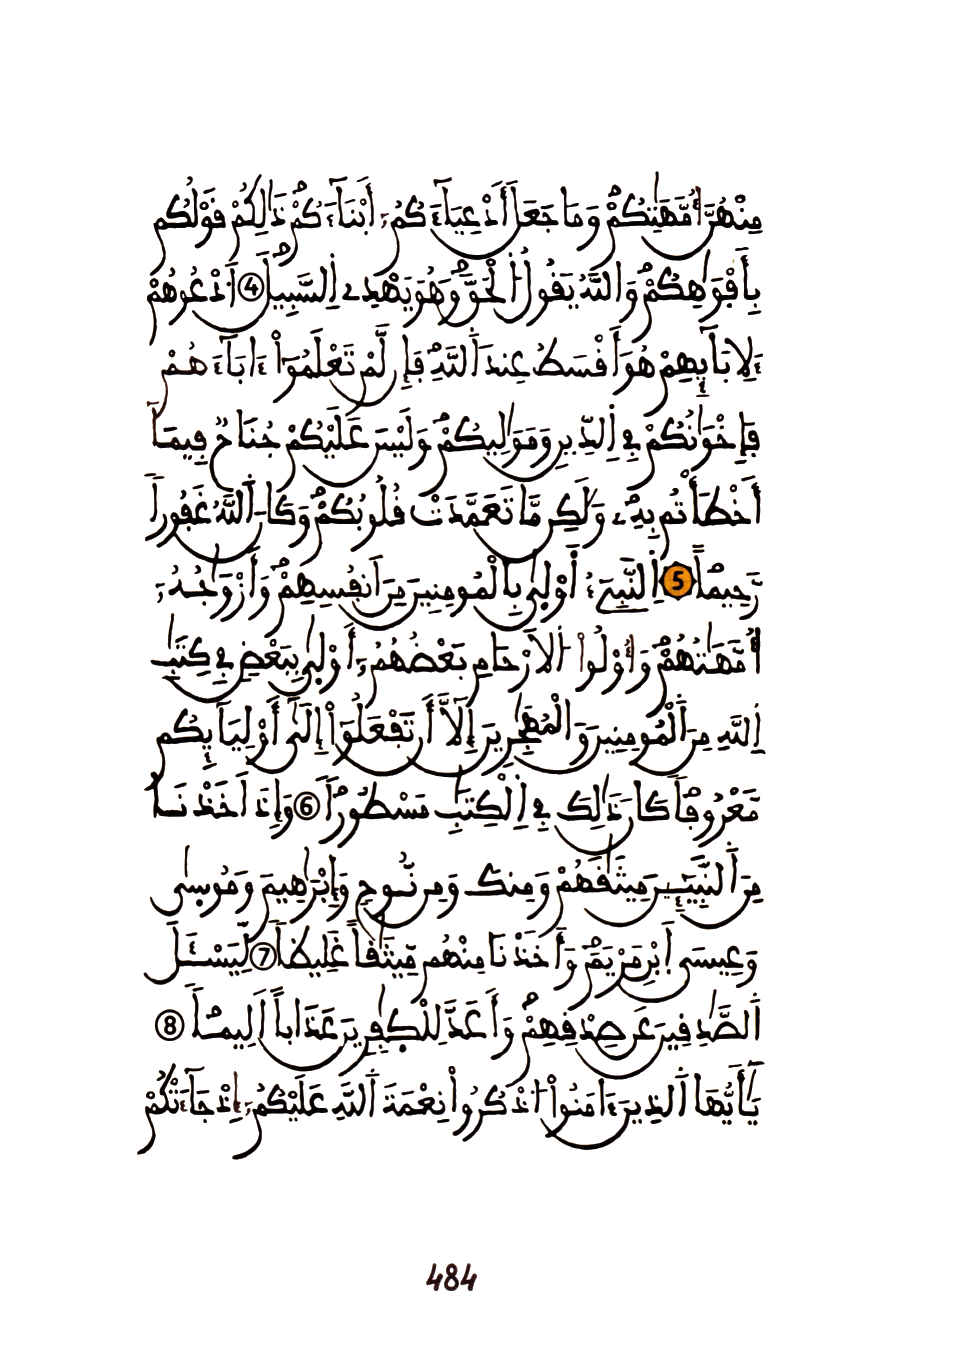 مِنْهُنَّ أُمَّهَٰتِكُمْ وَمَا جَعَلَ أَدْعِيَآءَكُمُۥٓ أَبْنَآءَكُمْ ذَٰلِكُمْ قَوْلُكُم
بِأَفْوَٰهِكُمْ وَاللَّهُ يَقُولُ اُ۬لْحَقَّ وَهُوَ يَهْدِے اِ۬لسَّبِيلَ 4 اَ۟دْعُوهُمْ
ءَلِابَآئِهِمْ هُوَ أَقْسَطُ عِندَ اَ۬للَّهِ فَإِن لَّمْ تَعْلَمُوٓاْ ءَابَآءَهُمْ
فَإِخْوَٰنُكُمْ فِے اِ۬لدِّينِ وَمَوَٰلِيكُمْ وَلَيْسَ عَلَيْكُمْ جُنَاحٌ فِيمَآ
أَخْطَأْتُم بِهِۦ وَلَٰكِن مَّا تَعَمَّدَتْ قُلُوبُكُمْ وَكَانَ اَ۬للَّهُ غَفُوراً
رَّحِيماً 5 اِ۬لنَّبِےٓءُ أَوْلَىٰ بِالْمُومِنِينَ مِنَ اَنفُسِهِمْ وَأَزْوَٰجُهُۥٓ
أُمَّهَٰتُهُمْ وَأُوْلُواْ اُ۬لَارْحَامِ بَعْضُهُمُۥٓ أَوْلَىٰ بِبَعْضٍ فِے كِتَٰبِ
اِ۬للَّهِ مِنَ اَ۬لْمُومِنِينَ وَالْمُهَٰجِرِينَ إِلَّآ أَن تَفْعَلُوٓاْ إِلَىٰٓ أَوْلِيَآئِكُم
مَّعْرُوفاً كَانَ ذَٰلِكَ فِے اِ۬لْكِتَٰبِ مَسْطُوراً 6 وَإِذَ اَخَذْنَا
مِنَ اَ۬لنَّبِيٓـِٕينَ مِيثَٰقَهُمْ وَمِنكَ وَمِن نُّوحٍ وَإِبْرَٰهِيمَ وَمُوسَىٰ
وَعِيسَى اَ۪بْنِ مَرْيَمَ وَأَخَذْنَا مِنْهُم مِّيثَٰقاً غَلِيظاً 7 لِّيَسْـَٔلَ
اَ۬لصَّٰدِقِينَ عَن صِدْقِهِمْ وَأَعَدَّ لِلْكَٰفِرِينَ عَذَاباً اَلِيماً 8
يَٰٓأَيُّهَا اَ۬لذِينَ ءَامَنُواْ اُ۟ذْكُرُواْ نِعْمَةَ اَ۬للَّهِ عَلَيْكُمُۥٓ إِذْ جَآءَتْكُمْ
484